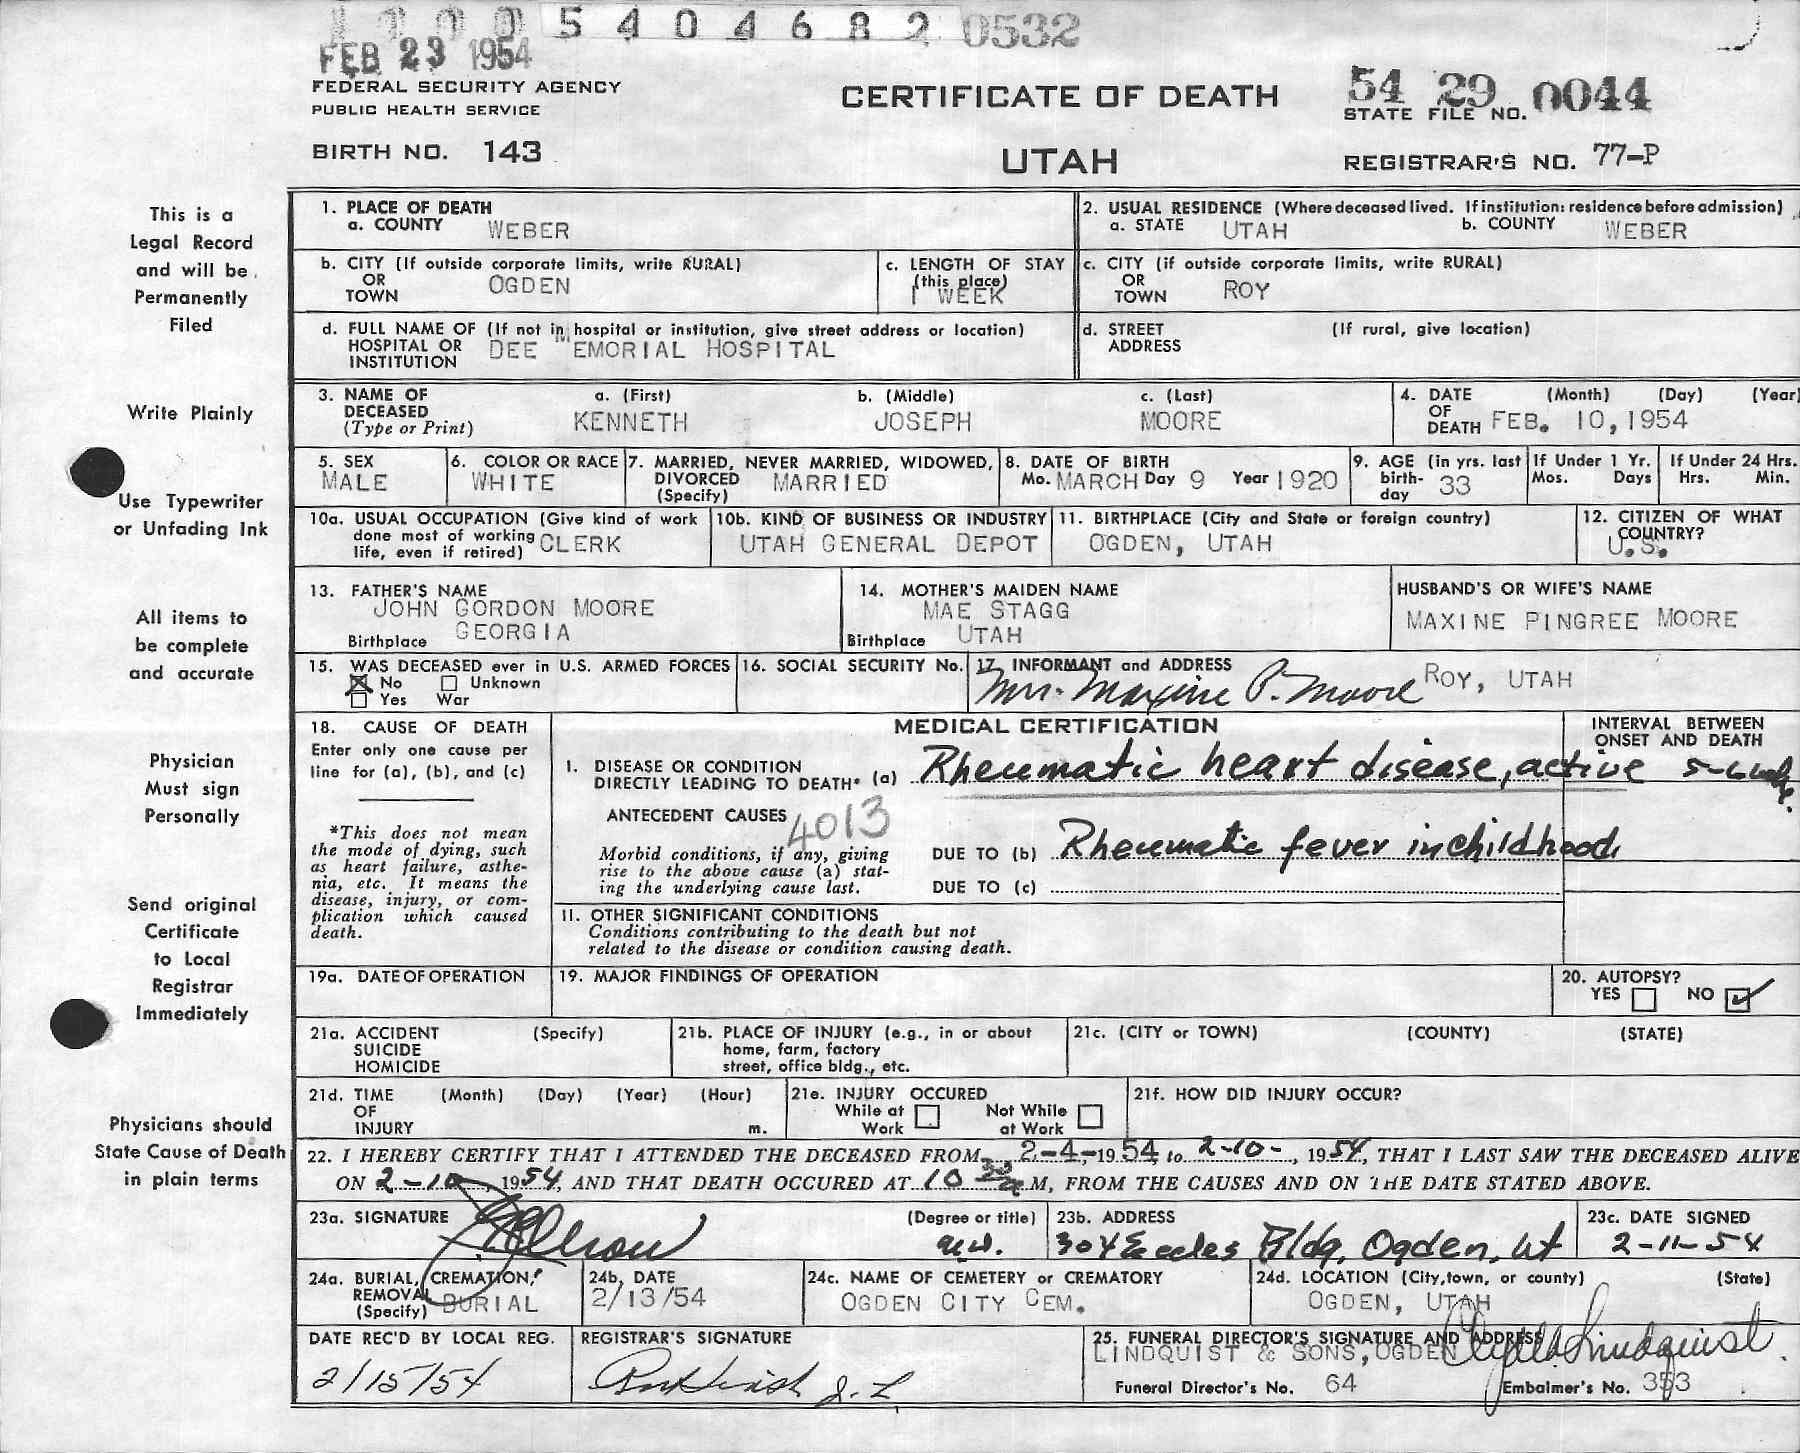 1 0 0 0 5 4 0 4 6 8 2 0532
FEB 23 1954
FEDERAL SECURITY AGENCY
PUBLIC HEALTH SERVICE
CERTIFICATE OF DEATH
54 29 0044
STATE FILE NO.
BIRTH NO. 143
UTAH
REGISTRAR'S NO. 77-P
This is a
Legal Record
and will be
Permanently
Filed
Write Plainly
Use Typewriter
or Unfading Ink
All items to
be complete
and accurate
Physician
Must sign
Personally
Send original
Certificate
to Local
Registrar
Immediately
Physicians should
State Cause of Death
in plain terms
1. PLACE OF DEATH
a. COUNTY WEBER
2. USUAL RESIDENCE (Where deceased lived. If institution: residence before admission)
a. STATE UTAH b. COUNTY WEBER
b. CITY (If outside corporate limits, write RURAL)
OR
TOWN OGDEN
c. LENGTH OF STAY
(this place)
1 WEEK
c. CITY (if outside corporate limits, write RURAL)
OR
TOWN ROY
d. FULL NAME OF (If not in hospital or institution, give street address or location)
HOSPITAL OR
INSTITUTION DEE MEMORIAL HOSPITAL
d. STREET (If rural, give location)
ADDRESS
3. NAME OF
DECEASED
(Type or Print)
a. (First) b. (Middle) c. (Last)
KENNETH JOSEPH MOORE
4. DATE (Month) (Day) (Year)
OF
DEATH FEB. 10, 1954
5. SEX
MALE
6. COLOR OR RACE
WHITE
7. MARRIED, NEVER MARRIED, WIDOWED,
DIVORCED MARRIED
(Specify)
8. DATE OF BIRTH
Mo. MARCH Day 9 Year 1920
9. AGE (in yrs. last
birth-
day 33
If Under 1 Yr.
Mos. Days
If Under 24 Hrs.
Hrs. Min.
10a. USUAL OCCUPATION (Give kind of work
done most of working
life, even if retired) CLERK
10b. KIND OF BUSINESS OR INDUSTRY
UTAH GENERAL DEPOT
11. BIRTHPLACE (City and State or foreign country)
OGDEN, UTAH
12. CITIZEN OF WHAT
COUNTRY?
U.S.
13. FATHER'S NAME
JOHN GORDON MOORE
Birthplace GEORGIA
14. MOTHER'S MAIDEN NAME
MAE STAGG
Birthplace UTAH
HUSBAND'S OR WIFE'S NAME
MAXINE PINGREE MOORE
15. WAS DECEASED ever in U.S. ARMED FORCES
No Unknown
Yes War
16. SOCIAL SECURITY No.
17. INFORMANT and ADDRESS
Mrs. Maxine P. Moore ROY, UTAH
18. CAUSE OF DEATH
Enter only one cause per
line for (a), (b), and (c)
*This does not mean
the mode of dying, such
as heart failure, asthe-
nia, etc. It means the
disease, injury, or com-
plication which caused
death.
MEDICAL CERTIFICATION
INTERVAL BETWEEN
ONSET AND DEATH
I. DISEASE OR CONDITION
DIRECTLY LEADING TO DEATH* (a) Rheumatic heart disease, active 5-6 wks.
ANTECEDENT CAUSES 4013
Morbid conditions, if any, giving
rise to the above cause (a) stat-
ing the underlying cause last.
DUE TO (b) Rheumatic fever in childhood
DUE TO (c)
II. OTHER SIGNIFICANT CONDITIONS
Conditions contributing to the death but not
related to the disease or condition causing death.
19a. DATE OF OPERATION
19. MAJOR FINDINGS OF OPERATION
20. AUTOPSY?
YES NO
21a. ACCIDENT (Specify)
SUICIDE
HOMICIDE
21b. PLACE OF INJURY (e.g., in or about
home, farm, factory
street, office bldg., etc.
21c. (CITY or TOWN) (COUNTY) (STATE)
21d. TIME (Month) (Day) (Year) (Hour)
OF
INJURY m.
21e. INJURY OCCURED
While at Work
Not While at Work
21f. HOW DID INJURY OCCUR?
22. I HEREBY CERTIFY THAT I ATTENDED THE DECEASED FROM 2-4-1954, to 2-10-, 1954, THAT I LAST SAW THE DECEASED ALIVE
ON 2-10, 1954, AND THAT DEATH OCCURED AT 10 30 a M, FROM THE CAUSES AND ON THE DATE STATED ABOVE.
23a. SIGNATURE (Degree or title)
M.D.
23b. ADDRESS
304 Eccles Bldg, Ogden, Ut
23c. DATE SIGNED
2-11-54
24a. BURIAL, CREMATION,
REMOVAL
(Specify) BURIAL
24b. DATE
2/13/54
24c. NAME OF CEMETERY or CREMATORY
OGDEN CITY CEM.
24d. LOCATION (City, town, or county) (State)
OGDEN, UTAH
DATE REC'D BY LOCAL REG.
2/15/54
REGISTRAR'S SIGNATURE
25. FUNERAL DIRECTOR'S SIGNATURE AND ADDRESS
LINDQUIST & SONS, OGDEN Clyde Lindquist
Funeral Director's No. 64 Embalmer's No. 353